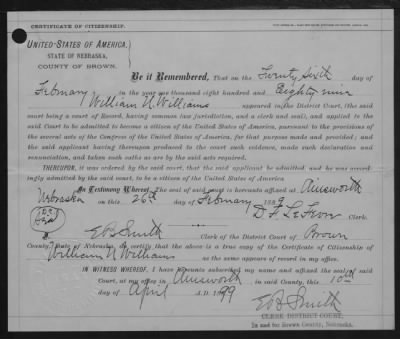 CERTIFICATE OF CITIZENSHIP.
UNITED STATES OF AMERICA,
STATE OF NEBRASKA,
COUNTY OF BROWN.
Be it Remembered, That on the Twenty Sixth day of
February in the year one thousand eight hundred and Eighty nine
William N Williams appeared in the District Court, (the said
court being a court of Record, having common law jurisdiction, and a clerk and seal), and applied to the
said Court to be admitted to become a citizen of the United States of America, pursuant to the provisions
of the several acts of the Congress of the United States of America, for that purpose made and provided; and
the said applicant having thereupon produced to the court such evidence, made such declaration and
renunciation, and taken such oaths as are by the said acts required.
THEREUPON, it was ordered by the said court, that the said applicant be admitted, and he was accord-
ingly admitted by the said court, to be a citizen of the United States of America
In Testimony Whereof, The seal of said court is hereunto affixed at Ainsworth
Nebraska on this 26th of February 1889
Clerk.
EB Smith Clerk of the District Court of Brown
County, State of Nebraska, do certify that the above is a true copy of the Certificate of Citizenship of
William N Williams as the same appears of record in my office.
IN WITNESS WHEREOF, I have hereunto subscribed my name and affixed the seal of said
Court, at my office in Ainsworth in said County, this 10th
day of April A.D. 1899
EB Smith
CLERK DISTRICT COURT,
In and for Brown County, Nebraska.